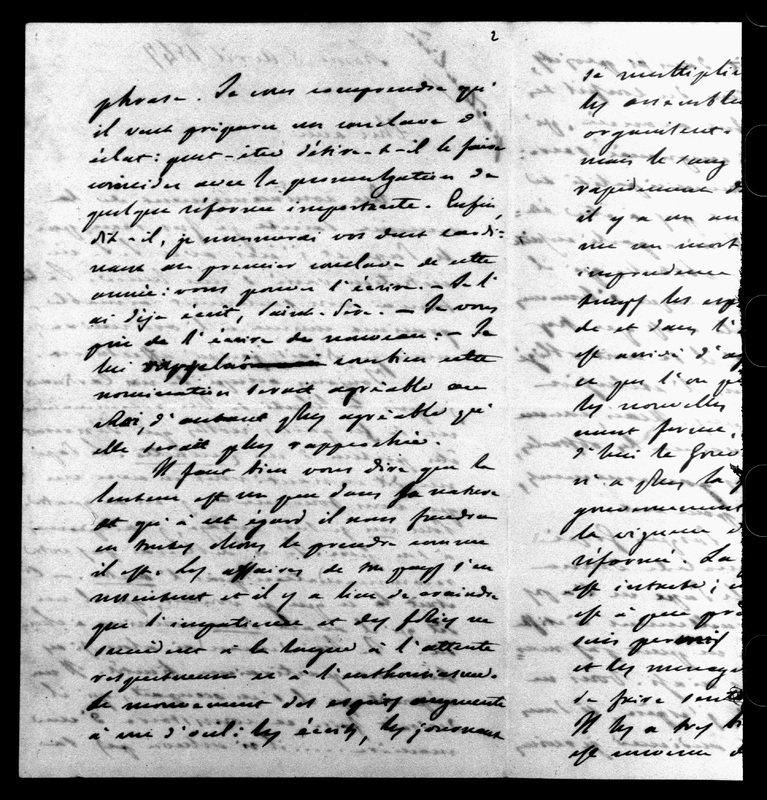 2
phrase. Je vous comprendre qu'
il veut préparer un conclave d'
éclat : peut-être désire-t-il le faire
coincider avec la promulgation de
quelque réforme importante. Enfin,
dit-il, je nommerai vos deux cardi-
naux au premier conclave de cette
année : vous pouvez l'écrire. - Je l'
ai déjà écrit, Saint-Père. - Je vous
prie de l'écrire de nouveau. - Je
lui combien cette
nomination serait agréable au
Roi, d'autant plus agréable qu'
elle serait plus rapprochée.
Il faut bien vous dire que la
lenteur est un peu dans sa nature
et qu'à cet égard il nous faudra
en toutes choses le prendre comme
il est. Les affaires de ce pays s'en
ressentent et il y a lieu de craindre
que l'impatience et des folies ne
succèdent à la longue à l'attente
respectueuse et à l'enthousiasme.
Le mouvement des esprits augmente
à vue d'oeil : les écrits, les journaux
se multiplie
les assemblé
organisent.
mais le sang
rapidement
il y a un an
ne un mort
imprudence
temps les esp
de et dans l'
est arrivé d'a
ce que l'on
les nouvelles
ment formé,
d'hui le Gou
n'a plus la
gouvernement
la vigueur
réformé. La
est intacte ;
est à peu prè
suis
et les ménage
de faire sent
Il y a très
est encore